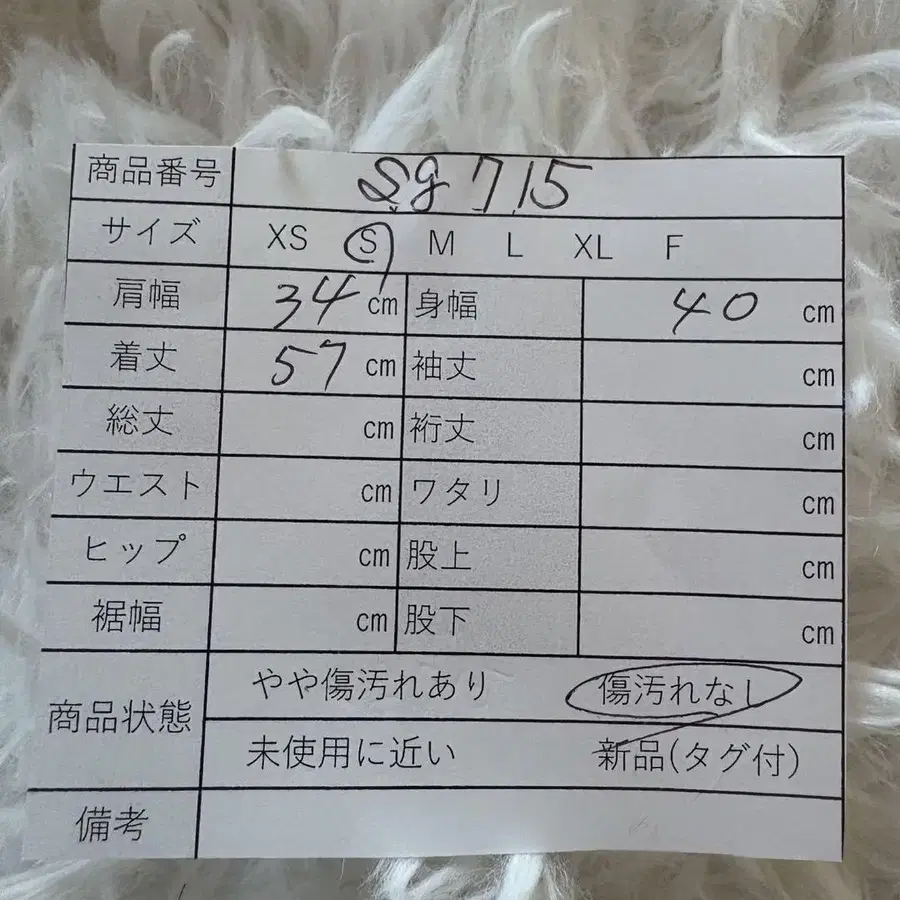 商品番号 Sg 715
サイズ XS S M L XL F
肩幅 34 cm 身幅 40 cm
着丈 57 cm 袖丈 cm
総丈 cm 裄丈 cm
ウエスト cm ワタリ cm
ヒップ cm 股上 cm
裾幅 cm 股下 cm
商品状態 やや傷汚れあり 傷汚れなし
未使用に近い 新品(タグ付)
備考